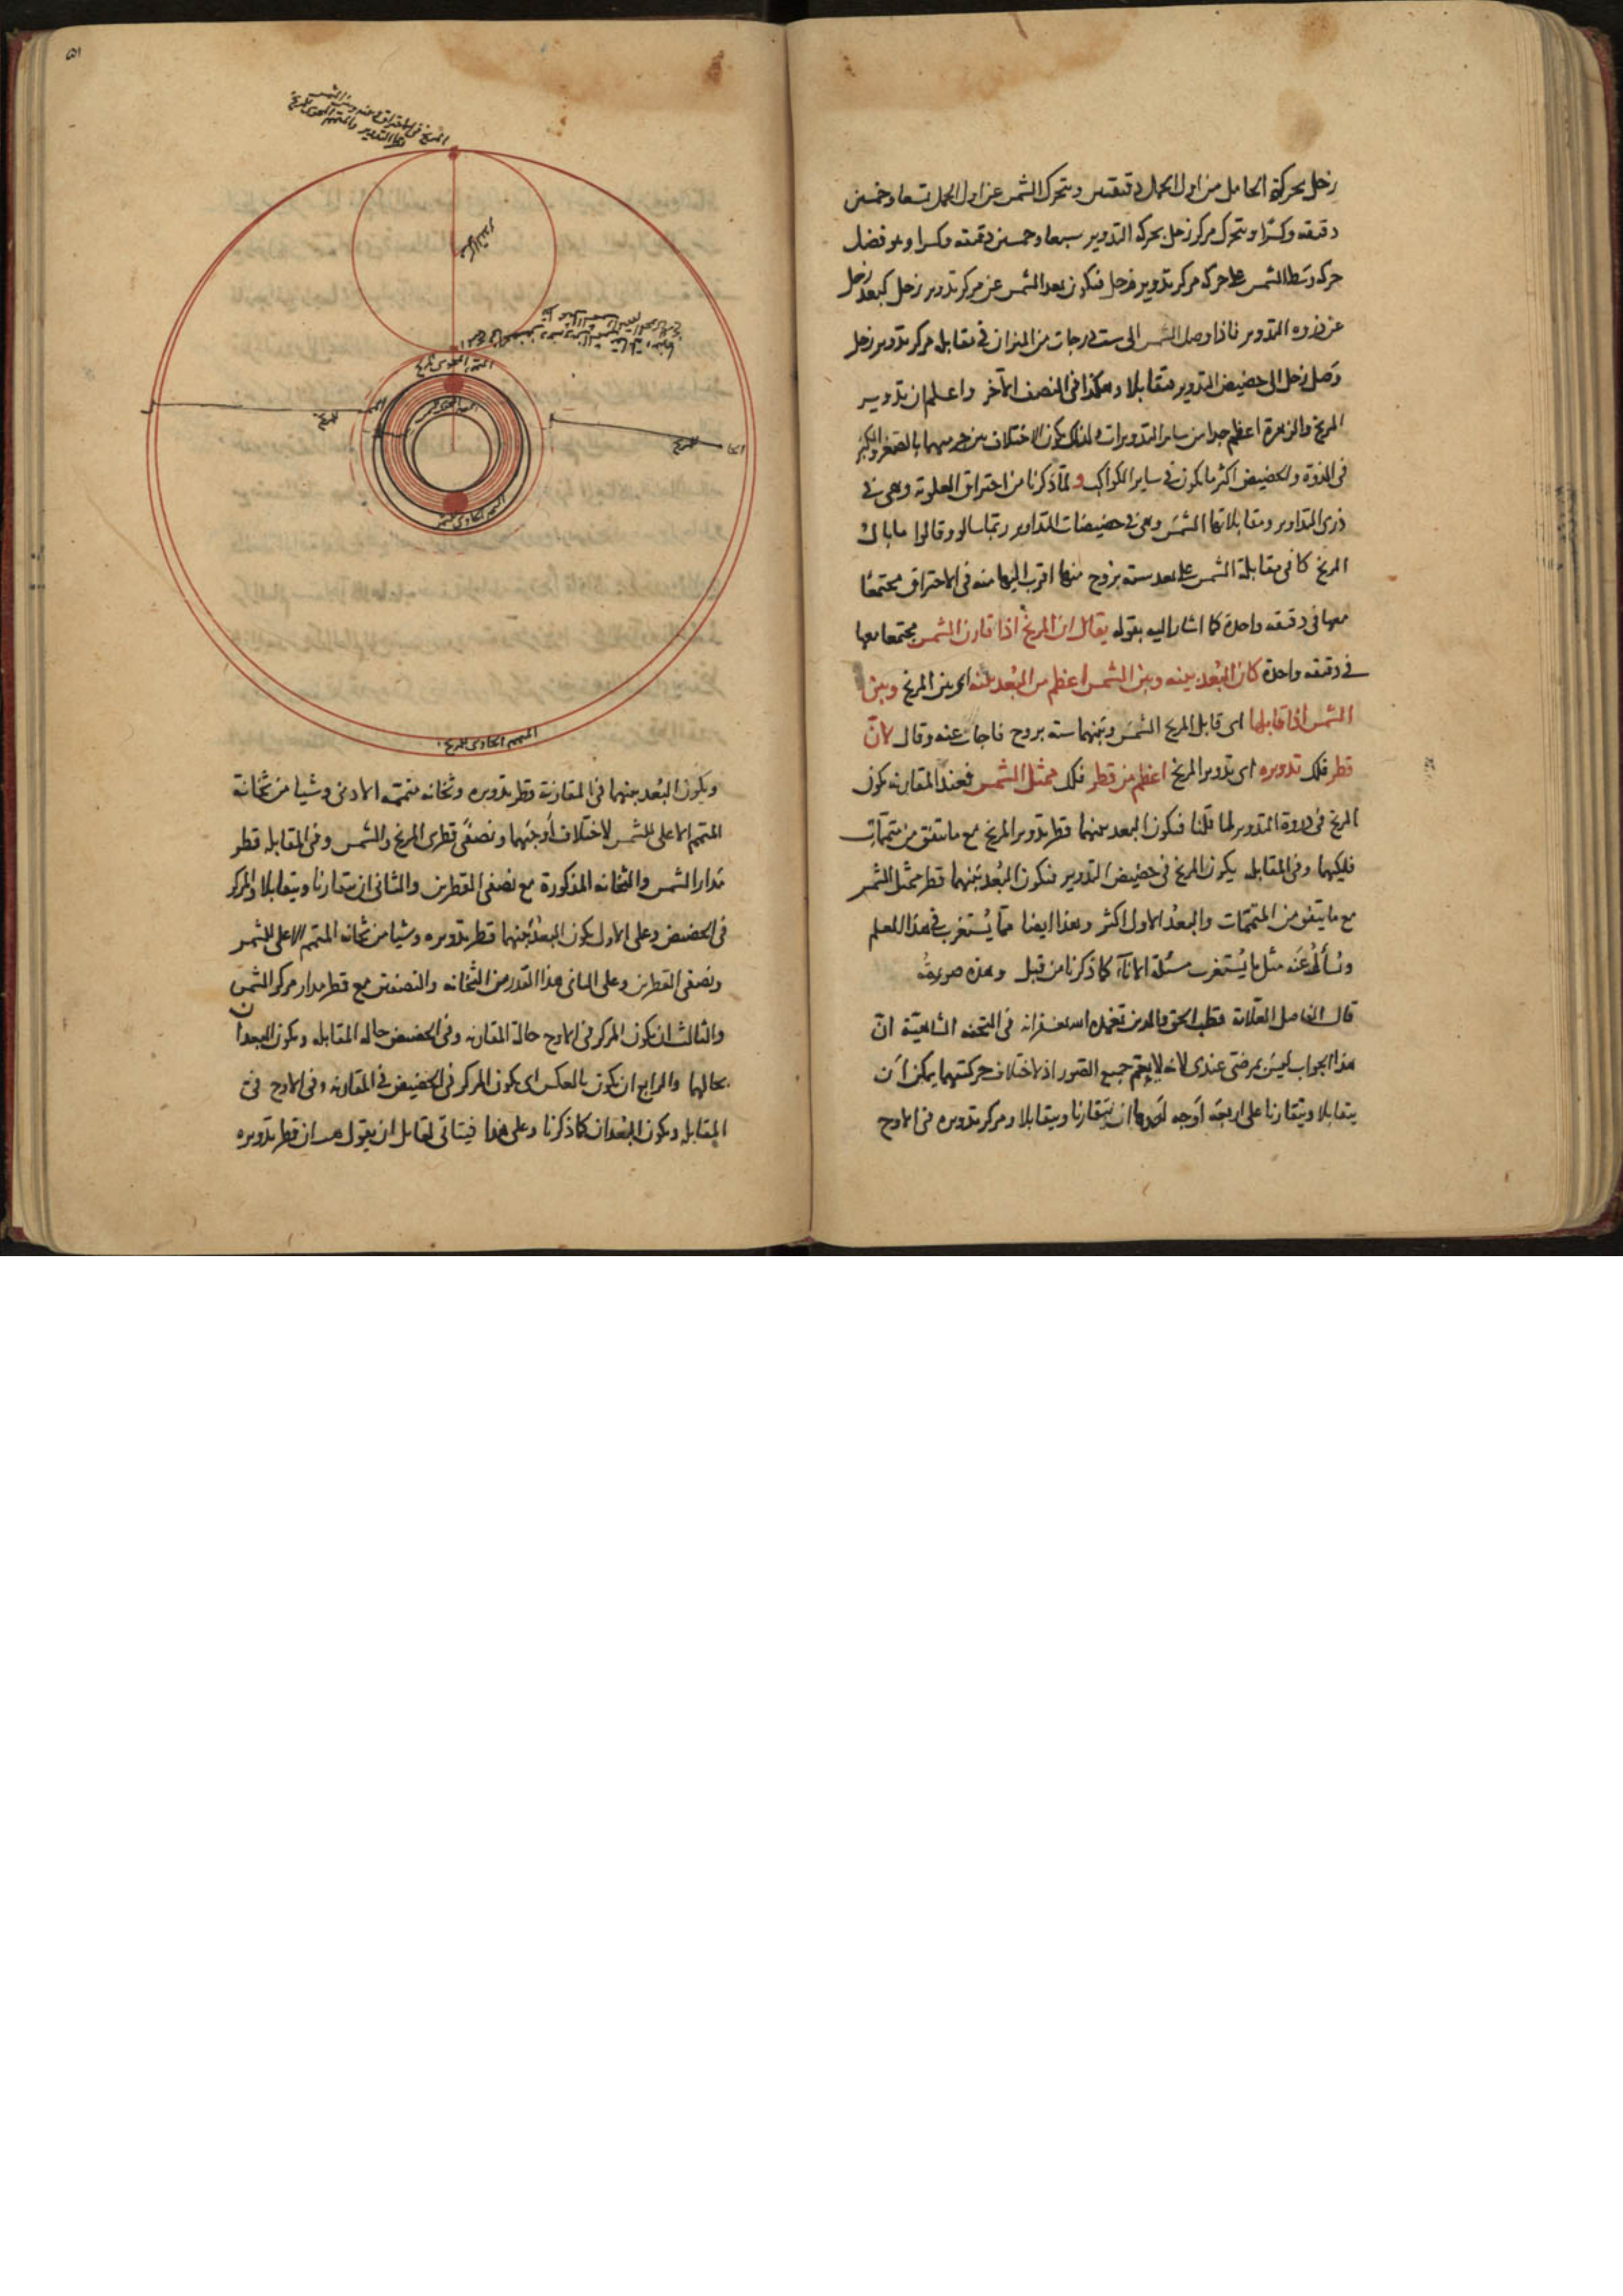 زحل بحركة الحامل من اول الحمل دقيقتين ويتحرك الشمس عن اول الحمل تسعا وخمسين
دقيقة وكسرا ويتحرك مركز زحل بحركة التدوير سبعا وخمسين دقيقة وكسرا وهو فضل
حركة وسط الشمس على حركة مركز تدوير زحل فيكون بعد الشمس عن مركز تدوير زحل كبعد زحل
عن ذروه التدوير فاذا وصل الشمس الى ست درجات من الميزان في مقابله مركز تدوير زحل
وصل زحل الى حضيض التدوير متقابلا وهكذا في النصف الآخر واعلم ان تدوير
المريخ والزهرة اعظم جدا من ساير التدويرات ولذلك يكون الاختلاف بين جرميهما بالصغر والكبر
في الذروة والحضيض اكثر ما يكون في ساير الكواكب ولما ذكرنا من احتراق العلوية وهي في
ذرى التداوير ومقابلاتها الشمس وهي في حضيضات التداوير ربما سالوا وقالوا ما بال
المريخ كان في مقابلة الشمس على بعد ستة بروج منها اقرب اليها منه في الاحتراق مجتمعا
معها في دقيقه واحدة كما اشار اليه بقوله يقال ان المريخ اذا قارن الشمس مجتمعا معها
في دقيقه واحدة كان البعد بينه وبين الشمس اعظم من البعد بينه اى بين المريخ وبين
الشمس اذا قابلها اى قابل المريخ الشمس وبينهما ستة بروج فاجاب عنه وقال لانّ
قطر فلك تدويره اى تدوير المريخ اعظم من قطر فلك ممثل الشمس فعند المقارنه يكون
المريخ في ذروة التدوير لما قلنا فيكون البعد بينهما قطر تدوير المريخ مع ما يتفق من متممات
فلكيهما وفي المقابله يكون المريخ في حضيض التدوير فيكون البعد بينهما قطر ممثل الشمس
مع ما يتفق من المتممات والبعد الاول اكثر وهذا ايضا مما يستغرب في هذا العلم
ويسأل عنه مثل ما يستغرب مسئلة الاناء كما ذكرنا من قبل وهذه صورته
قال الفاضل العلامة قطب الحق والدين تغمده الله بغفرانه في التحفه الشاهية انّ
هذا الجواب ليس بمرضى عندى لانه لا يعم جميع الصور اذ لاختلاف حركتيهما يمكن ان
يتقابلا ويتقارنا على اربعة اوجه احدها ان يتقارنا ويتقابلا ومركز تدويره في الاوج
٥١
المريخ في الاحتراق
مركز التدوير
المتمم المحوى للمريخ
المتمم الحاوى للشمس
المتمم الحاوى للمريخ
ويكون البعد بينهما في المقارنة قطر تدويره وثخانه متممه الادنى وشيا من ثخانة
المتمم الاعلى للشمس لاختلاف اوجيهما ونصفى قطرى المريخ والشمس وفي المقابله قطر
مدار الشمس والثخانه المذكورة مع نصفى القطرين والثانى ان يتقارنا ويتقابلا والمركز
في الحضيض وعلى الاول يكون البعد بينهما قطر تدويره وشيا من ثخانه المتمم الاعلى للشمس
ونصفى القطرين وعلى الثانى هذا القدر من الثخانه والنصفين مع قطر مدار مركز الشمس
والثالث ان يكون المركز في الاوج حالة المقارنه وفي الحضيض حاله المقابله ويكون البعدان
بحالهما والرابع ان يكون بالعكس اى يكون المركز في الحضيض في المقارنه وفي الاوج في
المقابله ويكون البعدان كما ذكرنا وعلى هذا فيتاتى لقايل ان يقول هب ان قطر تدويره